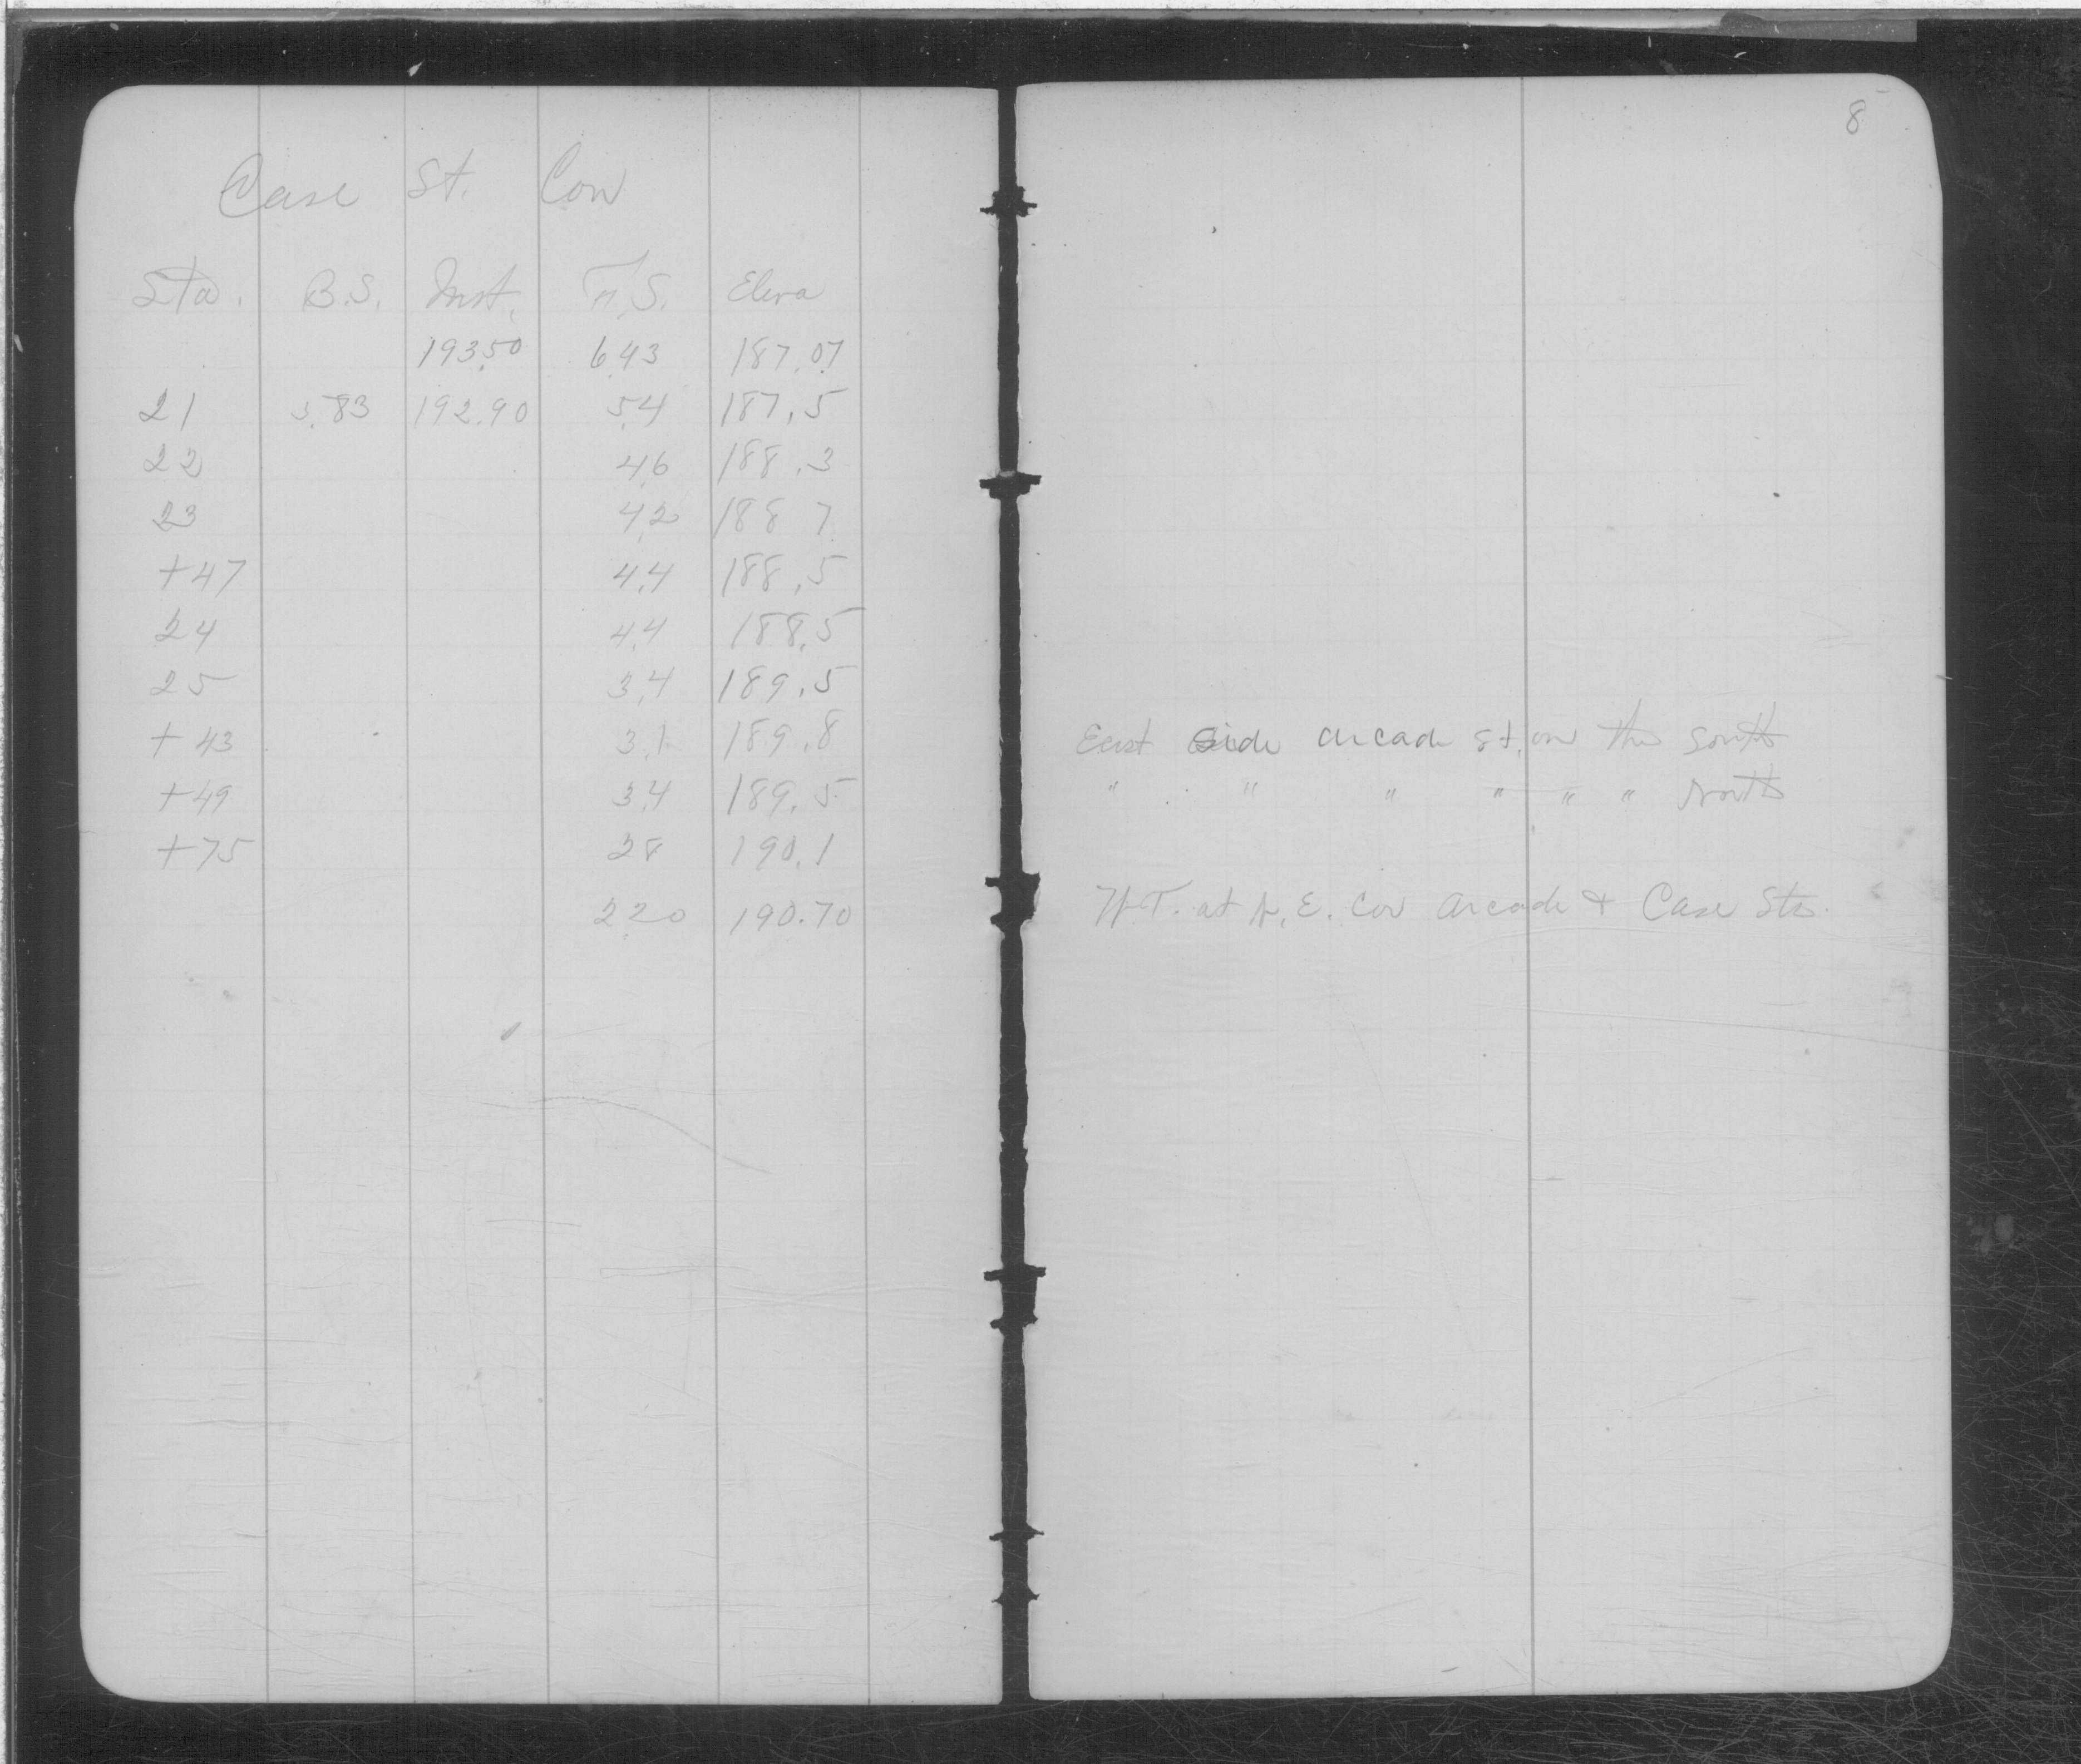 8
Case St. Con
Sta. B.S. Inst. F.S. Eleva
193.50 6.43 187.07
21 5.83 192.90 5.4 187.5
22 4.6 188.3
23 4.2 188 7
+47 4.4 188.5
24 4.4 188.5
25 3.4 189.5
+43 3.1 189.8 East Side Arcade St. on the South
+49 3.4 189.5 " " " " " " North
+75 2.8 190.1
2.20 190.70 at N.E. Cor Arcade & Case Sts.